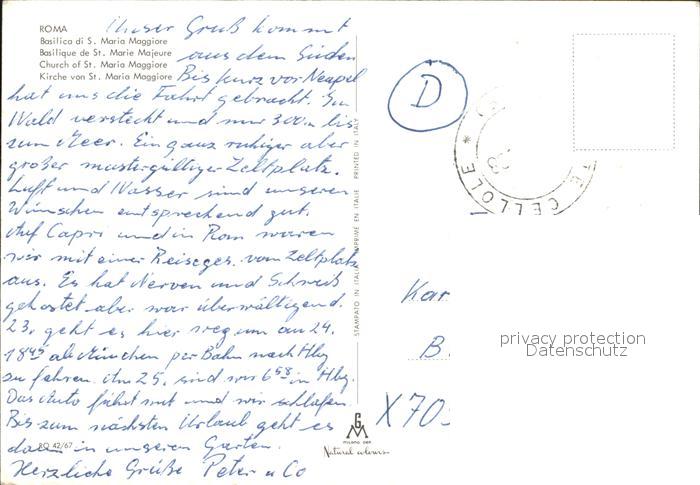 ROMA
Basilica di S. Maria Maggiore
Basilique de St. Marie Majeure
Church of St. Maria Maggiore
Kirche von St. Maria Maggiore
Dieser Gruß kommt
aus dem Süden
Bis kurz vor Neapel
hat uns die Fahrt gebracht. Im
Wald versteckt und nur 300 m bis
zum Meer. Ein ganz ruhiger aber
großer mustergültiger Zeltplatz.
Luft und Wasser sind unseren
Wünschen entsprechend gut.
Auf Capri und in Rom waren
wir mit einer Reiseges. vom Zeltplatz
aus. Es hat Nerven und Schweiß
gekostet aber war überwältigend.
23. geht es hier weg um am 24.
18⁴⁵ ab München per Bahn nach Hbg
zu fahren. Am 25. sind wir 6⁵⁸ in Hbg.
Das Auto fährt mit und wir schlafen.
Bis zum nächsten Urlaub geht es
dann in unseren Garten.
Herzliche Grüße Peter u Co
RO 42/67
STAMPATO IN ITALIA IMPRIMÉ EN ITALIE PRINTED IN ITALY
GM
MILANO DEP.
Natural colours
D
TE CELLOLE *
Kar
B
X 70
privacy protection
Datenschutz